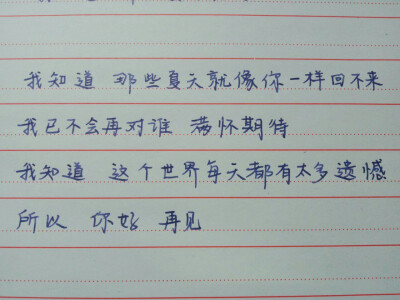 我知道 那些夏天就像你一样回不来
我已不会再对谁 满怀期待
我知道 这个世界每天都有太多遗憾
所以 你好 再见